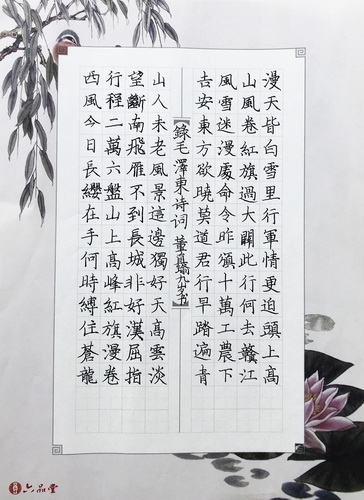 漫天皆白雪里行軍情更迫頭上高
山風卷紅旗過大關此行何去贛江
風雪迷漫處命令昨頒十萬工農下
吉安東方欲曉莫道君行早踏遍青
【錄毛澤東诗词 董書】
山人未老風景這邊獨好天高雲淡
望斷南飛雁不到長城非好漢屈指
行程二萬六盤山上高峰紅旗漫卷
西風今日長纓在手何時縛住蒼龍
六品堂